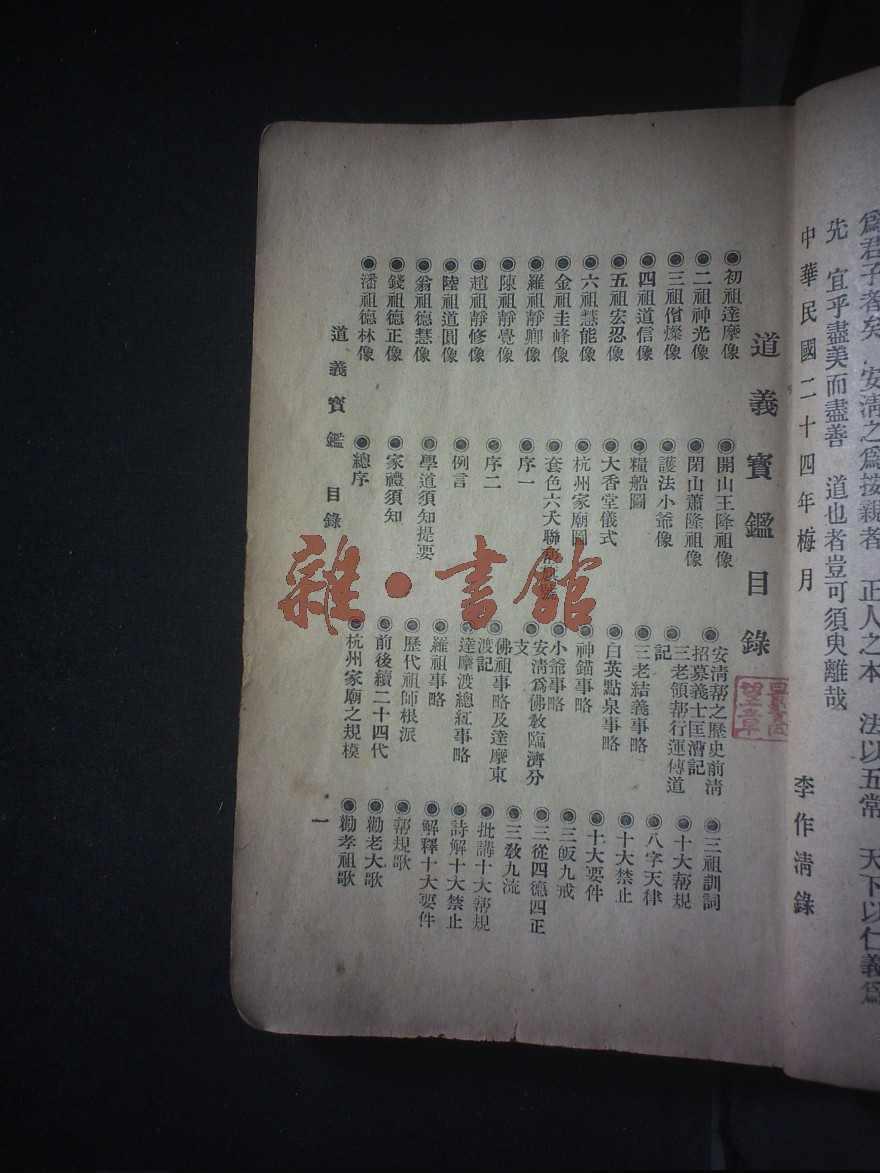 爲君子者矣 安淸之爲按親者 正人之本 法以五常 天下以仁義爲
先 宜乎盡美而盡善 道也者豈可須臾離哉
中華民國二十四年梅月 李作淸錄
道義寶鑑目錄
◉初祖達摩像
◉二祖神光像
◉三祖僧燦像
◉四祖道信像
◉五祖宏忍像
◉六祖慧能像
◉金祖圭峰像
◉羅祖靜卿像
◉陳祖靜覺像
◉趙祖靜修像
◉陸祖道圓像
◉翁祖德慧像
◉錢祖德正像
◉潘祖德林像
◉開山王降祖像
◉閉山蕭隆祖像
◉護法小爺像
◉糧船圖
◉大香堂儀式
◉杭州家廟圖
◉套色六大聯
◉序一
◉序二
◉例言
◉學道須知提要
◉家禮須知
◉總序
◉安淸帮之歷史前淸
招募義士匡漕記
◉三老領帮行運傳道
記
◉三老結義事略
◉白英點泉事略
◉神錨事略
◉小爺事略
◉安淸爲佛敎臨濟分
支
◉佛祖事略及達摩東
渡記
◉達摩渡總紅事略
◉羅祖事略
◉歷代祖師根派
◉前後續二十四代
◉杭州家廟之規模
◉三祖訓詞
◉十大帮規
◉八字天律
◉十大禁止
◉十大要件
◉三皈九戒
◉三從四德四正
◉三敎九流
◉批講十大帮規
◉詩解十大禁止
◉解釋十大要件
◉帮規歌
◉勸老大歌
◉勸孝祖歌
道義寶鑑 目錄
一
雜·書館